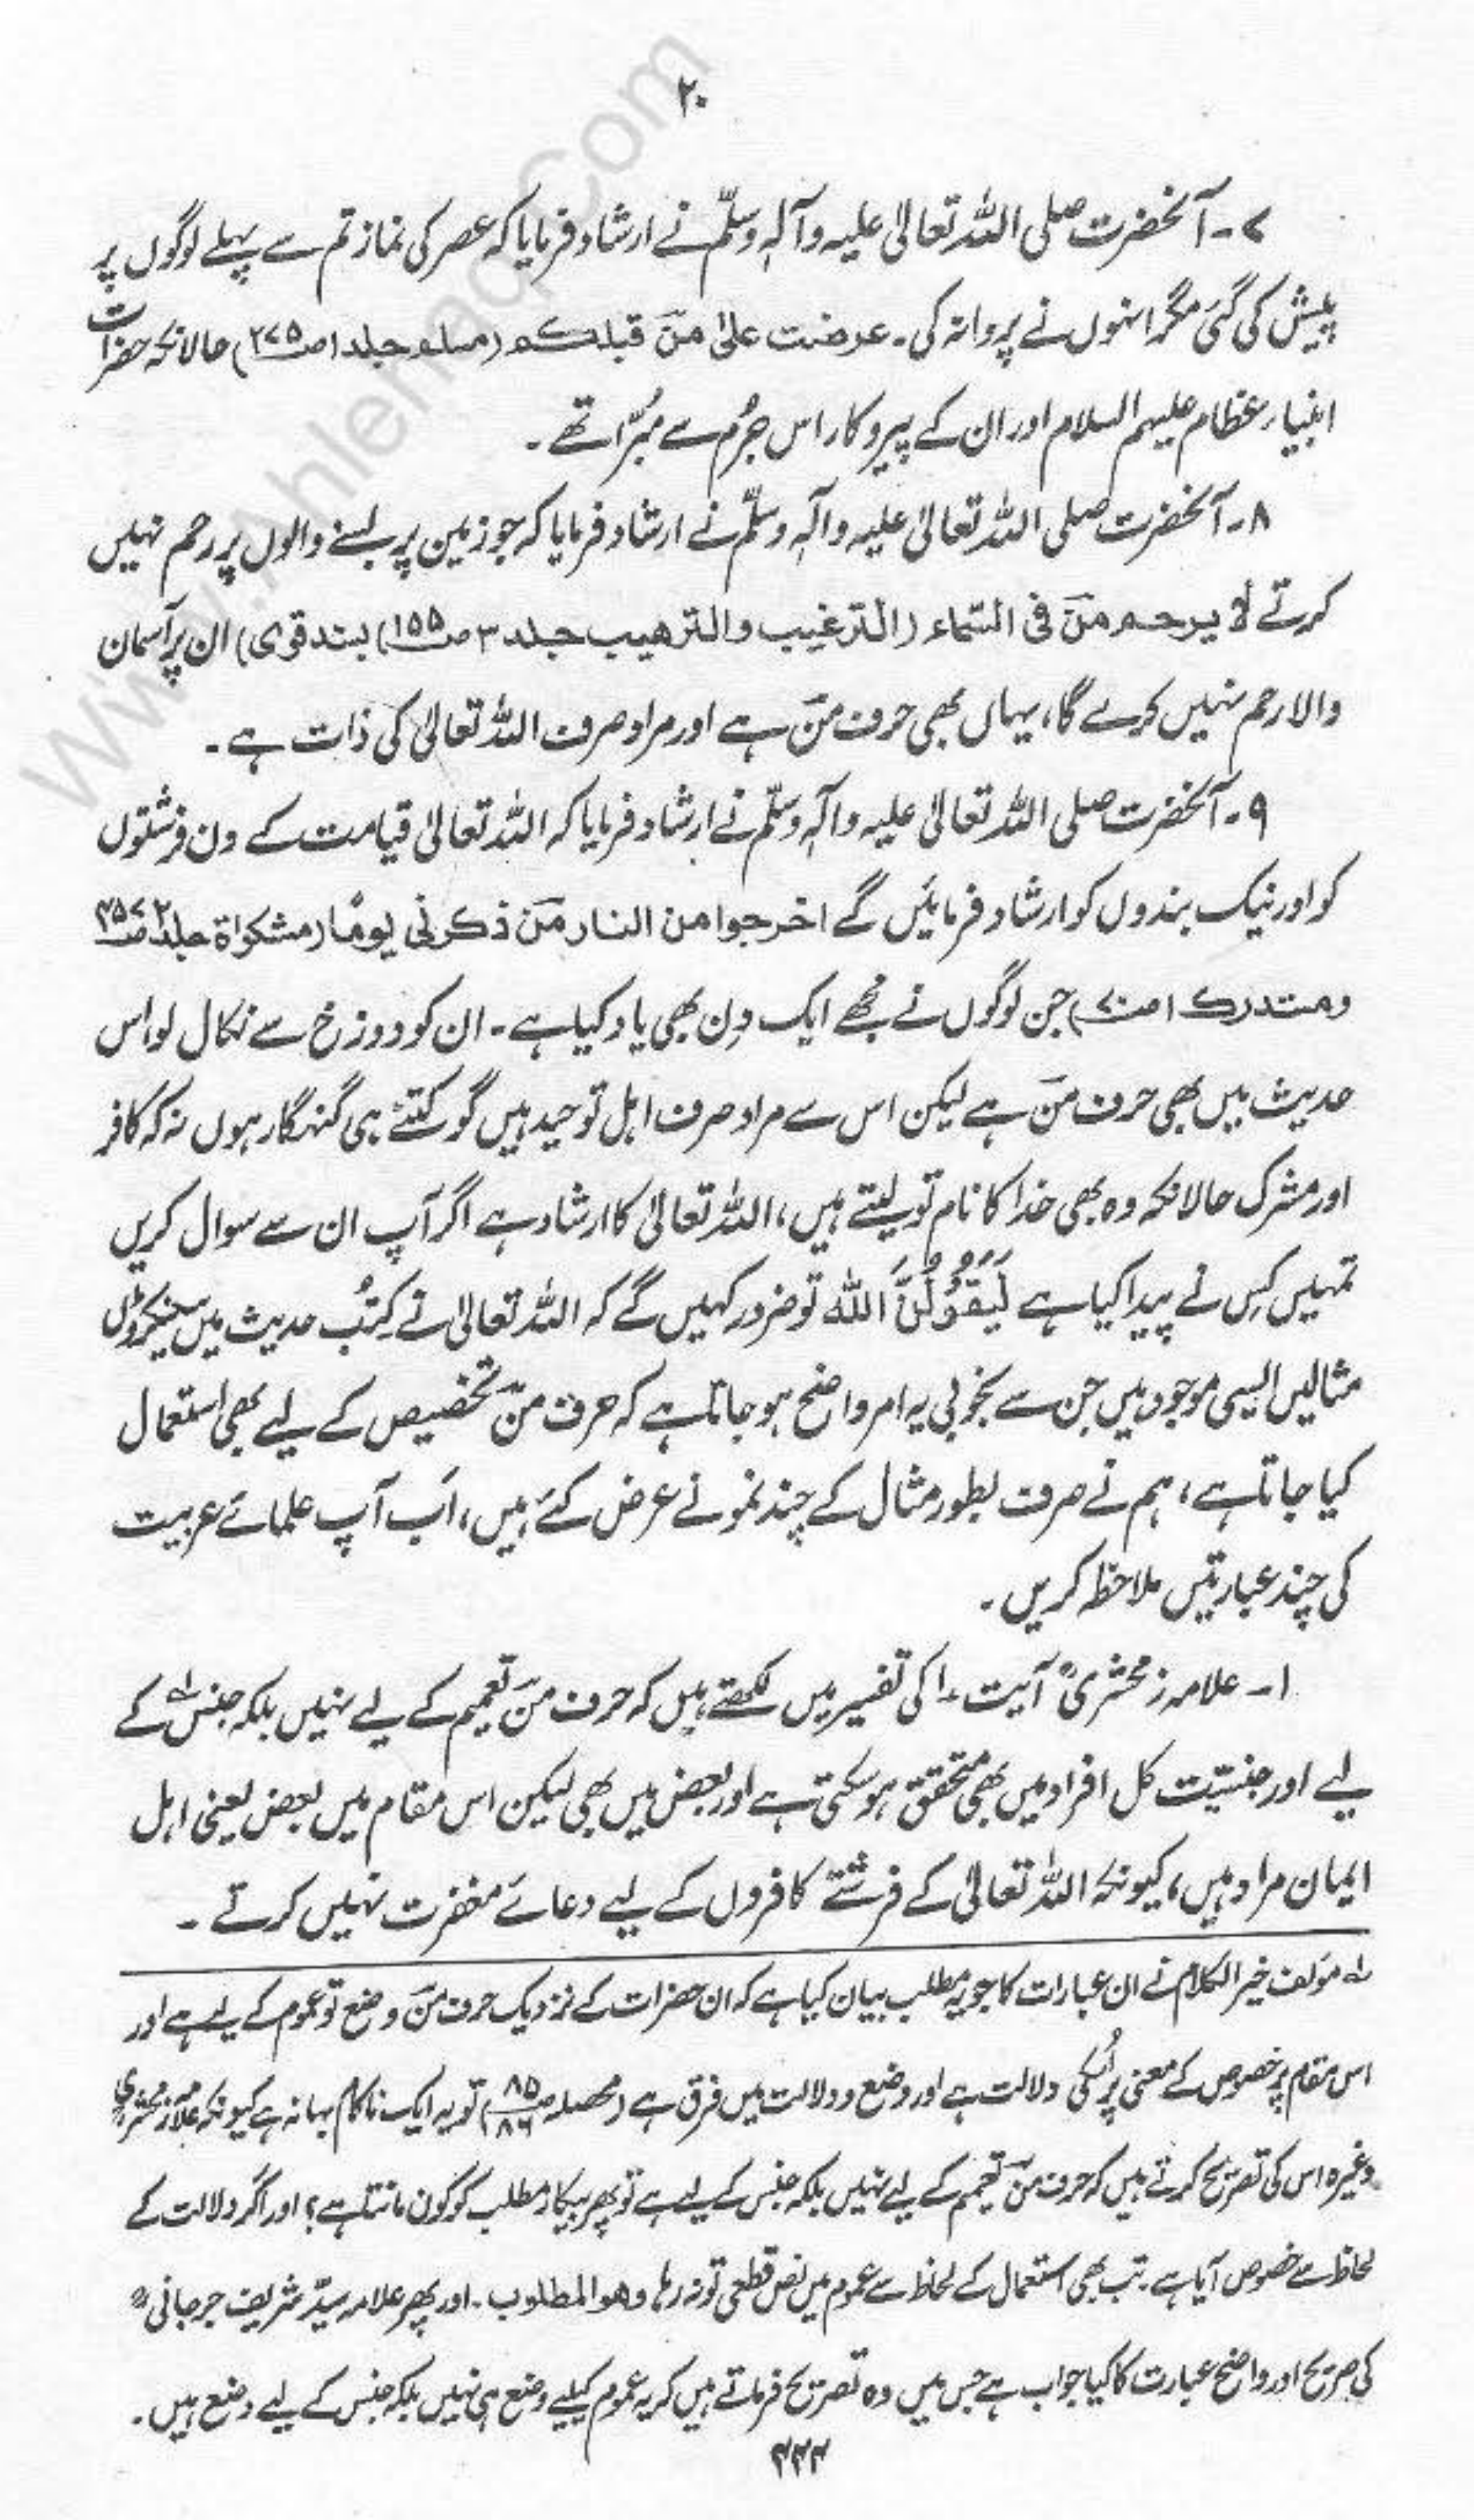 ۲۰
۷۔ آنحضرت صلی اللہ تعالیٰ علیہ وآلہٖ وسلّم نے ارشاد فرمایا کہ عصر کی نماز تم سے پہلے لوگوں پر
پیش کی گئی مگر انہوں نے پروا نہ کی۔ عرضت علیٰ منؔ قبلکم (مسلم جلد ۱ ص۲۷۵) حالانکہ حضرات
انبیاء عظام علیہم السلام اور ان کے پیروکار اس جُرم سے مبرّا تھے۔
۸۔ آنحضرت صلی اللہ تعالیٰ علیہ وآلہٖ وسلّم نے ارشاد فرمایا کہ جو زمین پر بسنے والوں پر رحم نہیں
کرتے لا یرحم منؔ فی السّماء (الترغیب والترھیب جلد ۳ ص۱۵۵) بسند قوی) ان پر آسمان
والا رحم نہیں کرے گا، یہاں بھی حرف منؔ ہے اور مراد صرف اللہ تعالیٰ کی ذات ہے۔
۹۔ آنحضرت صلی اللہ تعالیٰ علیہ وآلہٖ وسلّم نے ارشاد فرمایا کہ اللہ تعالیٰ قیامت کے دن فرشتوں
کو اور نیک بندوں کو ارشاد فرمائیں گے اخرجوا من النار منؔ ذکرنی یومًا (مشکواۃ جلد ۲ ص۴۵۷
ومستدرک ۱ ص۷۰) جن لوگوں نے مجھے ایک دِن بھی یاد کیا ہے۔ ان کو دوزخ سے نکال لو اس
حدیث میں بھی حرف منؔ ہے لیکن اس سے مراد صرف اہل توحید ہیں گو کتنے ہی گنہگار ہوں نہ کہ کافر
اور مشرک حالانکہ وہ بھی خدا کا نام تو لیتے ہیں، اللہ تعالیٰ کا ارشاد ہے اگر آپ ان سے سوال کریں
تمہیں کِس نے پیدا کیا ہے لَیَقُوْلُنَّ اللہ تو ضرور کہیں گے کہ اللہ تعالیٰ نے کتبُ حدیث میں سینکڑوں
مثالیں ایسی موجود ہیں جن سے بخوبی یہ امر واضح ہو جاتا ہے کہ حرف منؔ تخصیص کے لیے بھی استعمال
کیا جاتا ہے، ہم نے صرف بطور مثال کے چند نمونے عرض کئے ہیں، اَب آپ علمائے عربیت
کی چند عبارتیں ملاحظہ کریں۔
۱۔ علامہ زمخشریؒ آیت ۱۰ کی تفسیر میں لکھتے ہیں کہ حرف منؔ تعمیم کے لیے نہیں بلکہ جنس لہ کے
لیے اور جنسیّت کل افراد میں بھی متحقق ہو سکتی ہے اور بعض میں بھی لیکن اس مقام میں بعض یعنی اہل
ایمان مراد ہیں، کیونکہ اللہ تعالیٰ کے فرشتے کافروں کے لیے دعائے مغفرت نہیں کرتے۔
لہ مؤلف خیر الکلام نے ان عبارات کا جو یہ مطلب بیان کیا ہے کہ ان حضرات کے نزدیک حرف منؔ وضع تو عموم کے لیے ہے اور
اس مقام پر خصوص کے معنی پر اُسکی دلالت ہے اور وضع و دلالت میں فرق ہے (محصلہ ص۸۵، ۸۶) تو یہ ایک ناکام بہانہ ہے کیونکہ علامہ زمخشریؒ
وغیرہ اس کی تصریح کرتے ہیں کہ حرف منؔ تعمیم کے لیے نہیں بلکہ جنس کے لیے ہے تو پھر بیکار مطلب کو کون مانتا ہے؟ اور اگر دلالت کے
لحاظ سے خصوص آیا ہے۔ تب بھی استعمال کے لحاظ سے عموم میں نص قطعی تو نہ رہا وھو المطلوب۔ اور پھر علامہ سیّد شریف جرجانیؒ
کی صریح اور واضح عبارت کا کیا جواب ہے جس میں وہ تصریح فرماتے ہیں کہ یہ عموم کیلیے وضع ہی نہیں بلکہ جنس کے لیے وضع ہیں۔
۲۲۲
www.Ahlehaq.Com